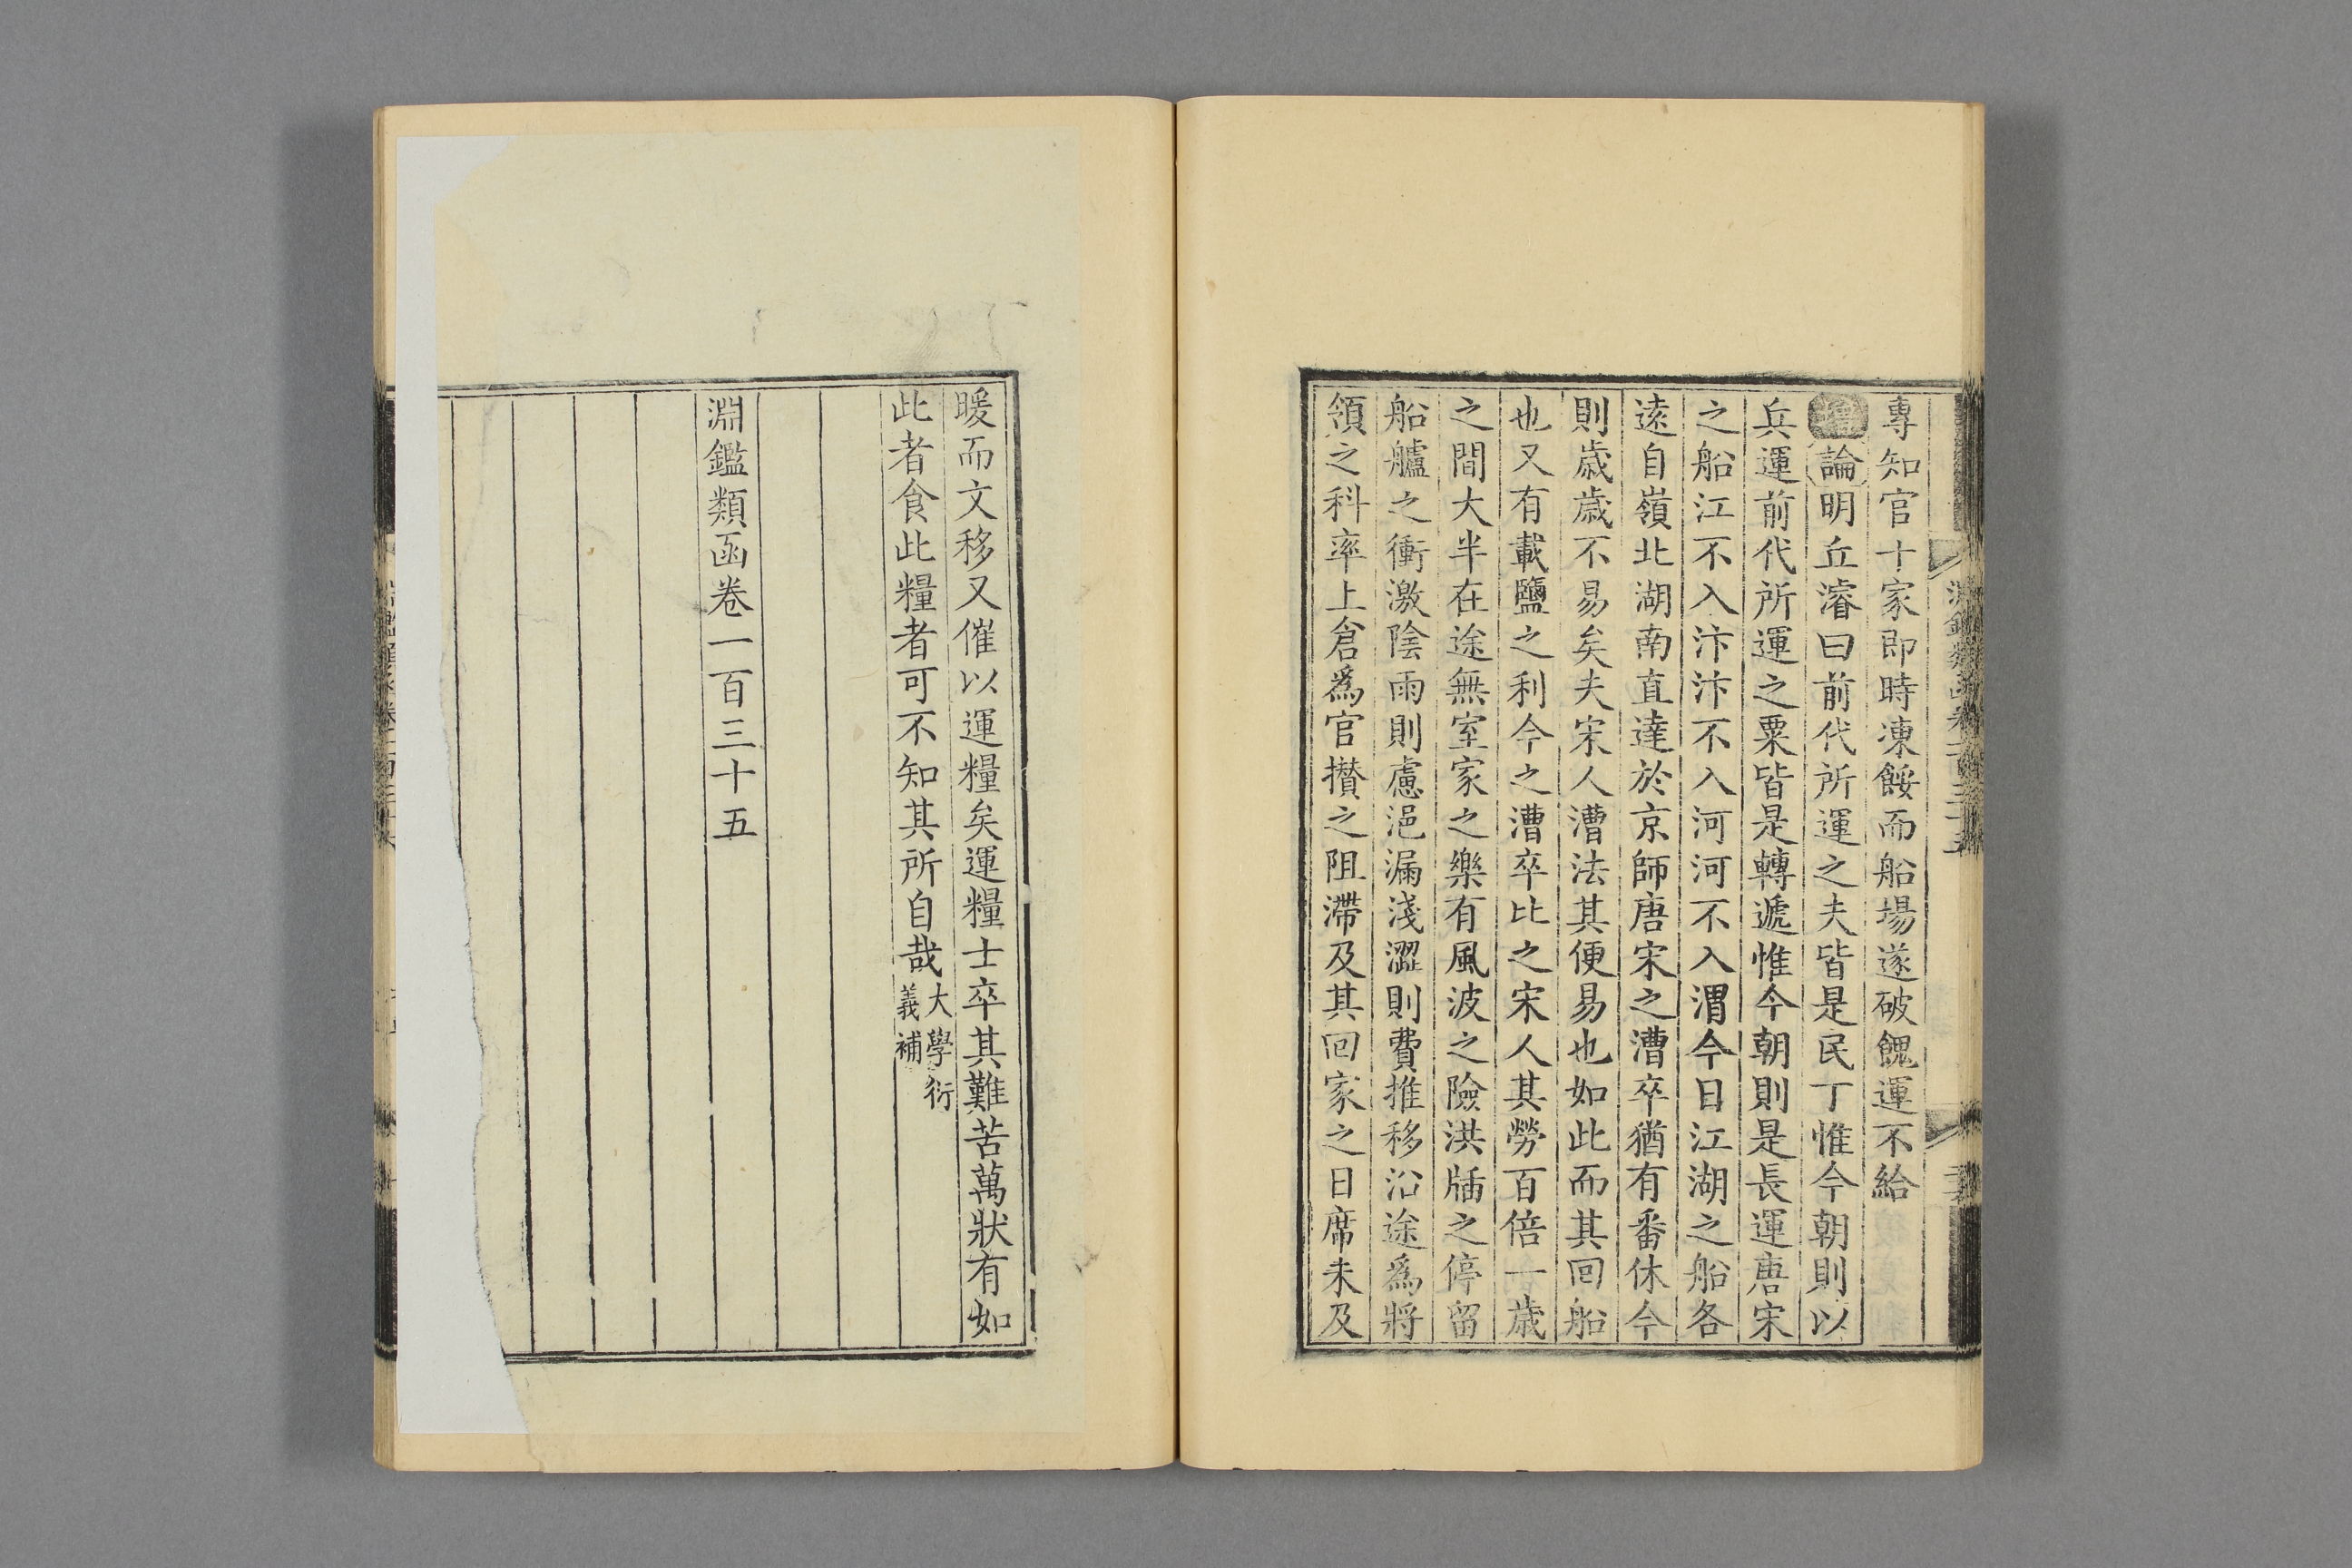 專知官十家即時凍餒而船場遂破餽運不給
增論明丘濬曰前代所運之夫皆是民丁惟今朝則以
兵運前代所運之粟皆是轉遞惟今朝則是長運唐宋
之船江不入汴汴不入河河不入渭今日江湖之船各
遠自嶺北湖南直達於京師唐宋之漕卒猶有番休今
則歲歲不易矣夫宋人漕法其便易也如此而其回船
也又有載鹽之利今之漕卒比之宋人其勞百倍一歲
之間大半在途無室家之樂有風波之險洪牐之停留
船艫之衝激陰雨則慮浥漏淺澀則費推移沿途爲將
領之科率上倉爲官攅之阻滯及其回家之日席未及
暖而文移又催以運糧矣運糧士卒其難苦萬狀有如
此者食此糧者可不知其所自哉大學衍
義補
淵鑑類函卷一百三十五